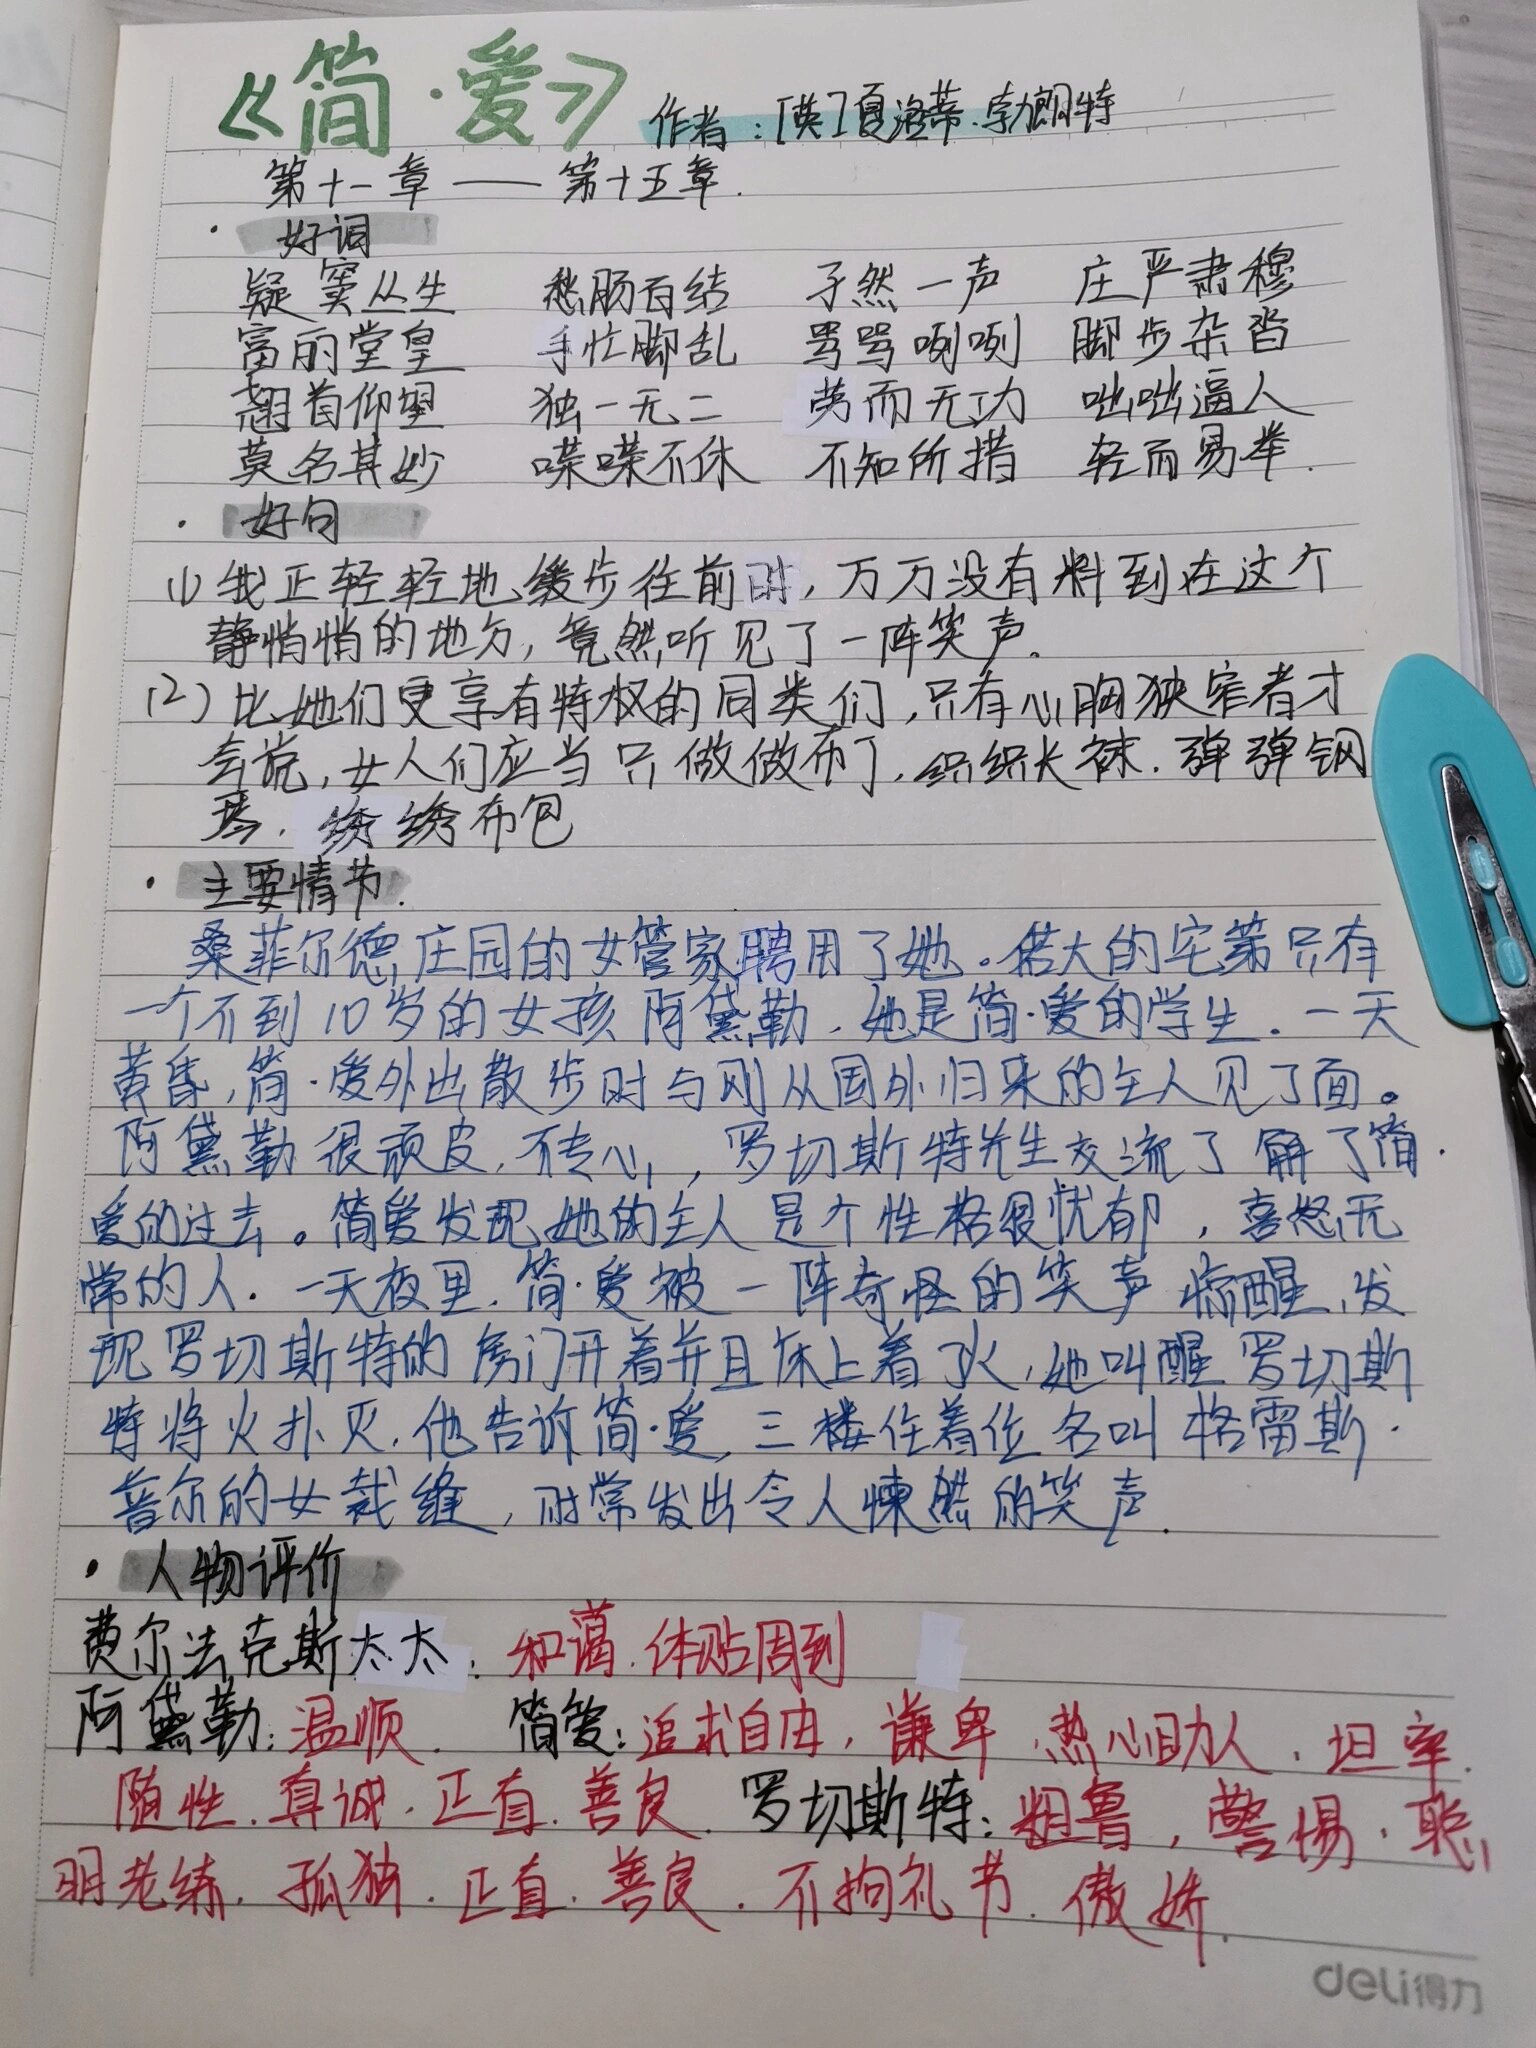 《简·爱》 作者：[英]夏洛蒂·勃朗特
第十一章——第十五章.
· 好词
疑窦丛生 愁肠百结 孑然一声 庄严肃穆
富丽堂皇 手忙脚乱 骂骂咧咧 脚步杂沓
翘首仰望 独一无二 劳而无功 咄咄逼人
莫名其妙 喋喋不休 不知所措 轻而易举.
· 好句
(1) 我正轻轻地、缓步往前时，万万没有料到在这个
静悄悄的地方，竟然听见了一阵笑声。
(2) 比她们更享有特权的同类们，只有心胸狭窄者才
会说，女人们应当只做做布丁、织织长袜、弹弹钢
琴、绣绣布包
· 主要情节.
桑菲尔德庄园的女管家聘用了她。偌大的宅第只有
一个不到10岁的女孩阿黛勒，她是简·爱的学生.一天
黄昏，简·爱外出散步时与刚从国外归来的主人见了面。
阿黛勒很顽皮，不专心，，罗切斯特先生交流了解了简·
爱的过去。简爱发现她的主人是个性格很忧郁，喜怒无
常的人.一天夜里，简·爱被一阵奇怪的笑声惊醒，发
现罗切斯特的房门开着并且床上着了火，她叫醒罗切斯
特将火扑灭，他告诉简·爱，三楼住着位名叫格雷斯·
普尔的女裁缝，时常发出令人悚然的笑声.
· 人物评价
费尔法克斯太太：和蔼、体贴周到
阿黛勒：温顺. 简爱：追求自由，谦卑、热心助人、坦率、
随性、真诚、正直、善良、罗切斯特：粗鲁，警惕、聪
明老练、孤独、正直、善良、不拘礼节、傲娇.
deli得力